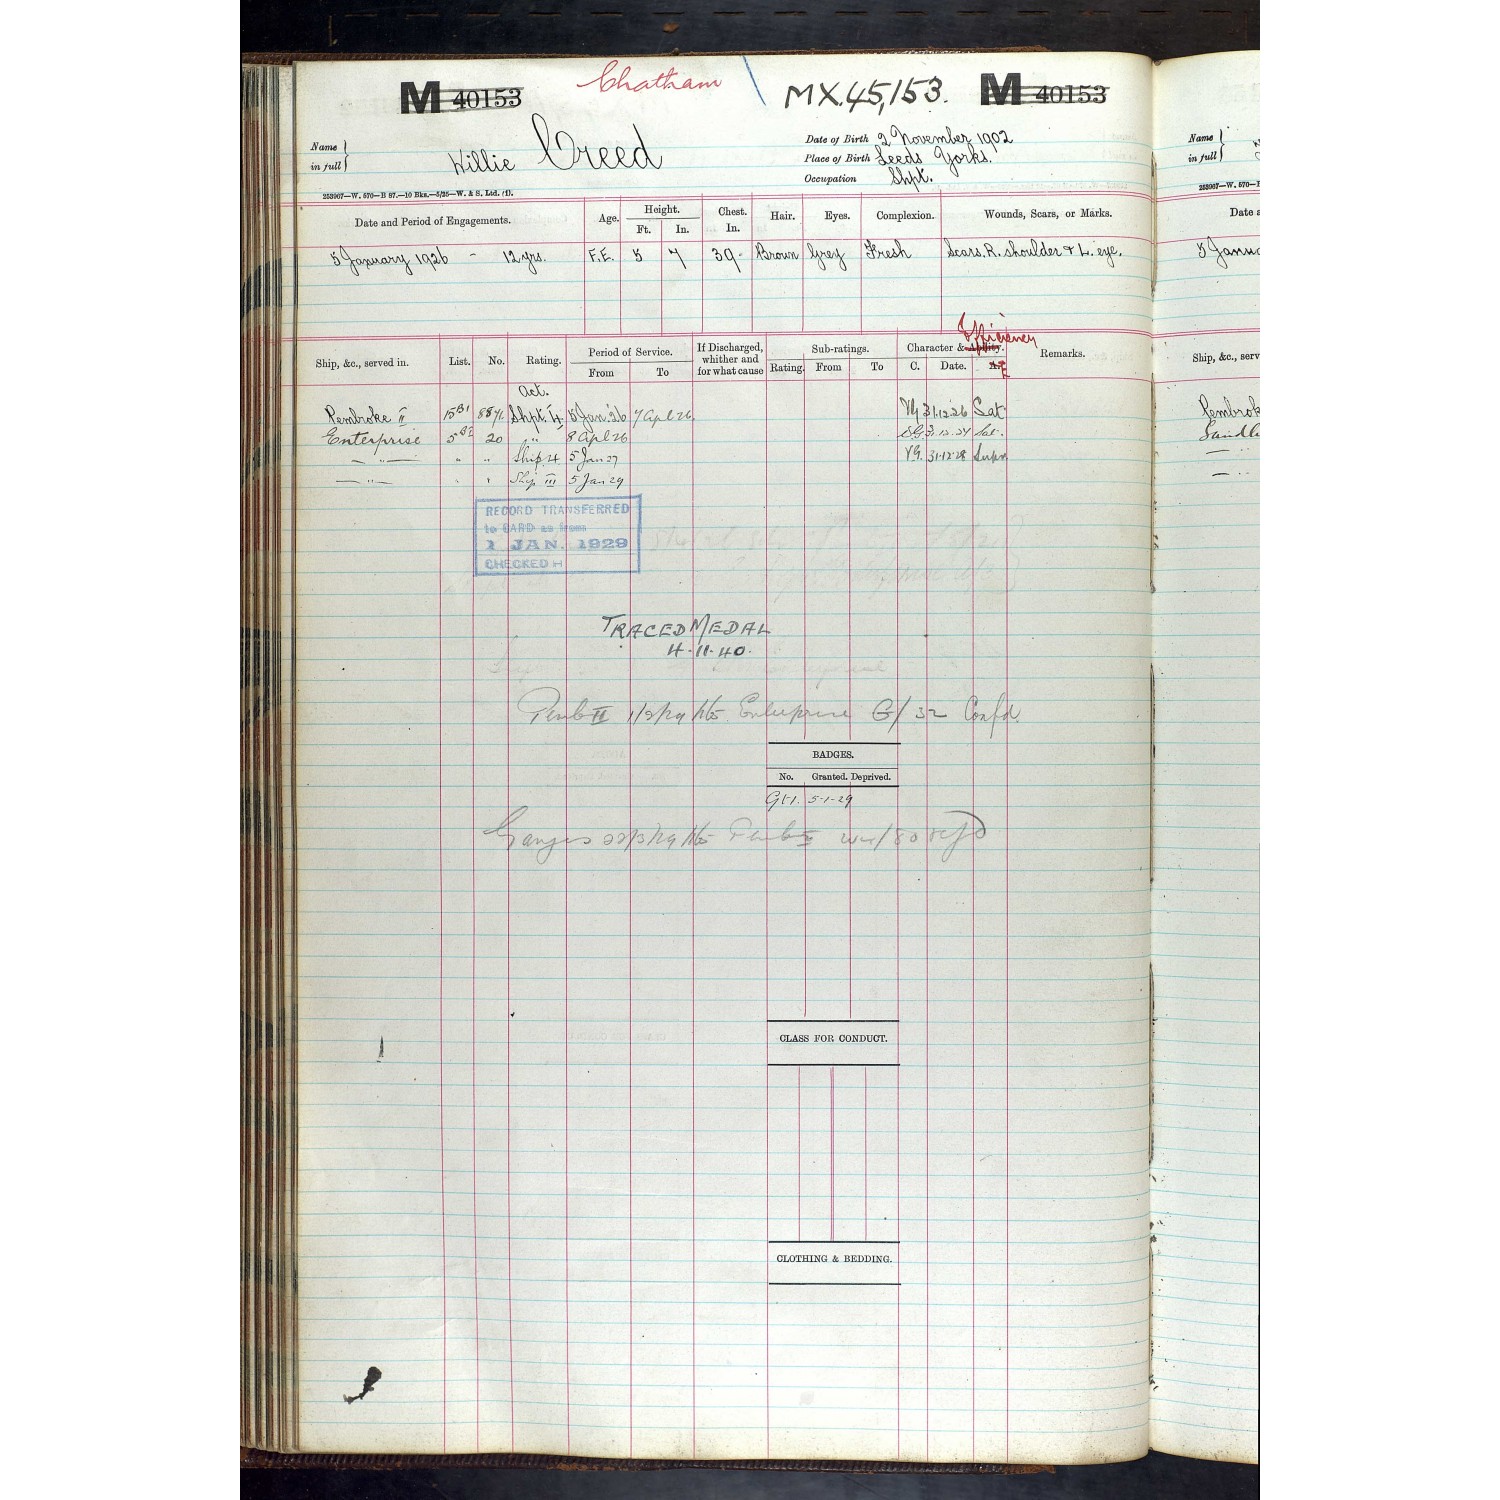 M 40153 Chatham MX.45,153. M 40153
Name in full } Willie Creed
Date of Birth 2 November 1902
Place of Birth Leeds Yorks.
Occupation Shpt.
253967—W. 570—B 87.—10 Bks.—5/25—W. & S. Ltd. (1).
Date and Period of Engagements. Age. Height. Ft. In. Chest. In. Hair. Eyes. Complexion. Wounds, Scars, or Marks.
5 January 1926 - 12 yrs. F.E. 5 7 39. Brown Grey Fresh Scars. R. shoulder & L. eye.
Efficiency
Ship, &c., served in. List. No. Rating. Period of Service. From To If Discharged, whither and for what cause Sub-ratings. Rating. From To Character & Ability. C. Date. Remarks.
Act.
Pembroke II 15B1 8871 Shpt. 4 5 Jan. 26 7 Apl 26 VG 31.12.26 Sat
Enterprise 5 20 " 8 Apl 26 Sat.
— " — " " Ship. 4 5 Jan 27 VG. 31-12-28 Supr
— " — Ship III 5 Jan 29
RECORD TRANSFERRED
to CARD as from
1 JAN. 1929
CHECKED
TRACED MEDAL
4-11-40.
Pemb II Enterprise G/32 Confd.
BADGES.
No. Granted. Deprived.
Gt 1. 5-1-29
Ganges Pemb II
CLASS FOR CONDUCT.
CLOTHING & BEDDING.
Name in full }
Date a
5 Janu
Ship, &c., serv
Pembrok